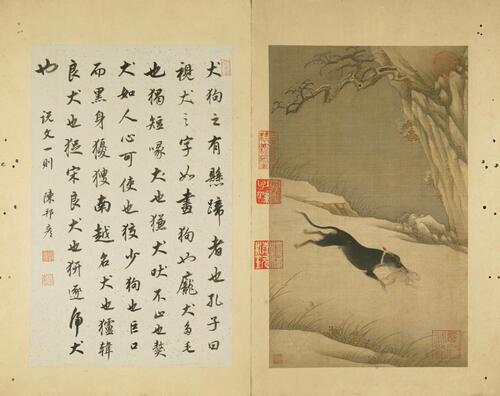 犬狗之有懸蹄者也孔子曰
視犬之字如畫狗也龐犬多毛
也猲短喙犬也獫犬吠不止也獒
犬如人心可使也狡少狗也巨口
而黑身獿獀南越名犬也獹韓
良犬也宋良犬也逐虎犬
也
說文一則 陳邦彥